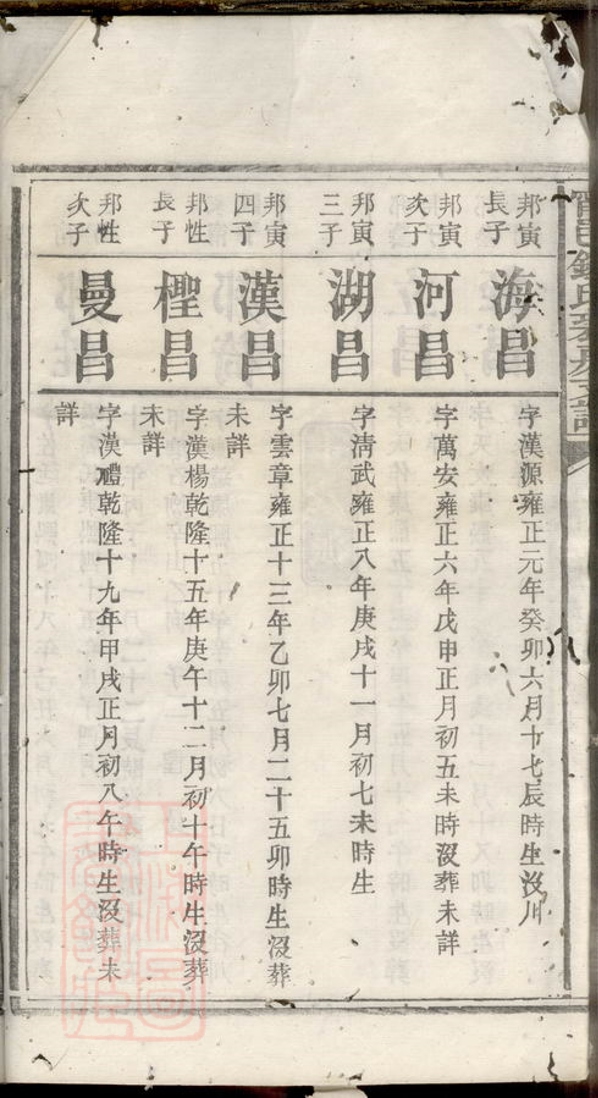 邦寅
長子
海昌
字漢源雍正元年癸卯六月十七辰時生沒川
邦寅
次子
河昌
字萬安雍正六年戊申正月初五未時沒葬未詳
邦寅
三子
湖昌
字淸武雍正八年庚戌十一月初七未時生
邦寅
四子
漢昌
字雲章雍正十三年乙卯七月二十五卯時生沒葬
未詳
邦性
長子
檉昌
字漢楊乾隆十五年庚午十二月初十午時生沒葬
未詳
邦性
次子
曼昌
字漢禮乾隆十九年甲戌正月初八午時生沒葬未
詳